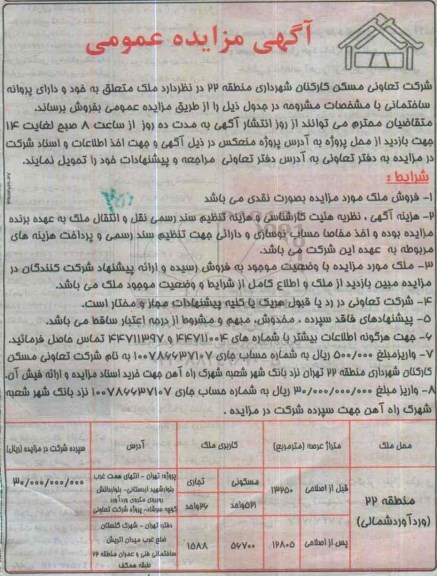 آگهی مزایده عمومی
شرکت تعاونی مسکن کارکنان شهرداری منطقه ۲۲ در نظردارد ملک متعلق به خود و دارای پروانه
ساختمانی با مشخصات مشروحه در جدول ذیل را از طریق مزایده عمومی بفروش برساند.
متقاضیان محترم می توانند از روز انتشار آگهی به مدت ده روز از ساعت ۸ صبح لغایت ۱۴
جهت بازدید از محل پروژه به آدرس پروژه منعکس در ذیل آگهی و جهت اخذ اطلاعات و اسناد شرکت
در مزایده به دفتر تعاونی به آدرس دفتر تعاونی مراجعه و پیشنهادات خود را تحویل نمایند.
شرایط :
۱- فروش ملک مورد مزایده بصورت نقدی می باشد
۲- هزینه آگهی ، نظریه هئیت کارشناسی و هزینه تنظیم سند رسمی نقل و انتقال ملک به عهده برنده
مزایده بوده و اخذ مفاصا حساب نوسازی و دارائی جهت تنظیم سند رسمی و پرداخت هزینه های
مربوطه به عهده این شرکت می باشد.
۳- ملک مورد مزایده با وضعیت موجود به فروش رسیده و ارائه پیشنهاد شرکت کنندگان در
مزایده مبین بازدید از ملک و اطلاع کامل از شرایط و وضعیت موجود ملک می باشد.
۴- شرکت تعاونی در رد یا قبول هریک یا کلیه پیشنهادات مجاز و مختار است.
۵- پیشنهادهای فاقد سپرده ، مخدوش، مبهم و مشروط از درجه اعتبار ساقط می باشد.
۶- جهت هرگونه اطلاعات بیشتر با شماره های ۴۴۷۱۱۰۰۴ و ۴۴۷۱۱۳۹۷ تماس حاصل فرمائید.
۷- واریزمبلغ ۵۰۰/۰۰۰ ریال به شماره حساب جاری ۱۰۰۷۸۶۶۳۷۱۰۷ به نام شرکت تعاونی مسکن
کارکنان شهرداری منطقه ۲۲ تهران نزد بانک شهر شعبه شهرک راه آهن جهت خرید اسناد مزایده و ارائه فیش آن.
۸- واریز مبلغ ۳۰/۰۰۰/۰۰۰/۰۰۰ ریال به شماره حساب جاری ۱۰۰۷۸۶۶۳۷۱۰۷ نزد بانک شهر شعبه
شهرک راه آهن جهت سپرده شرکت در مزایده .
محل ملک
متراژ عرصه (مترمربع)
کاربری ملک
آدرس
سپرده شرکت در مزایده (ریال)
منطقه ۲۲
(وردآوردشمالی)
قبل از اصلاحی
۱۳۲۵۰
مسکونی
تجاری
۵۲۱واحد
۲۶واحد
پس از اصلاحی
۱۲۸۰۵
۵۶۷۰۰
۱۵۸۸
پروژه: تهران - انتهای همت غرب
بلوارشهید اردستانی-
پروژه شرکت تعاونی
دفتر: تهران - شهرک گلستان
ضلع غرب میدان اتریش
ساختمانی فنی و عمران منطقه ۲۲
طبقه همکف
۳۰/۰۰۰/۰۰۰/۰۰۰